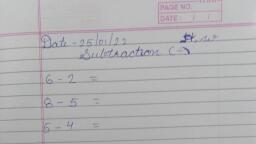 PAGE NO.
DATE: / /
Date - 25/01/22
Subtraction (-)
6 - 2 =
8 - 5 =
5 - 4 =